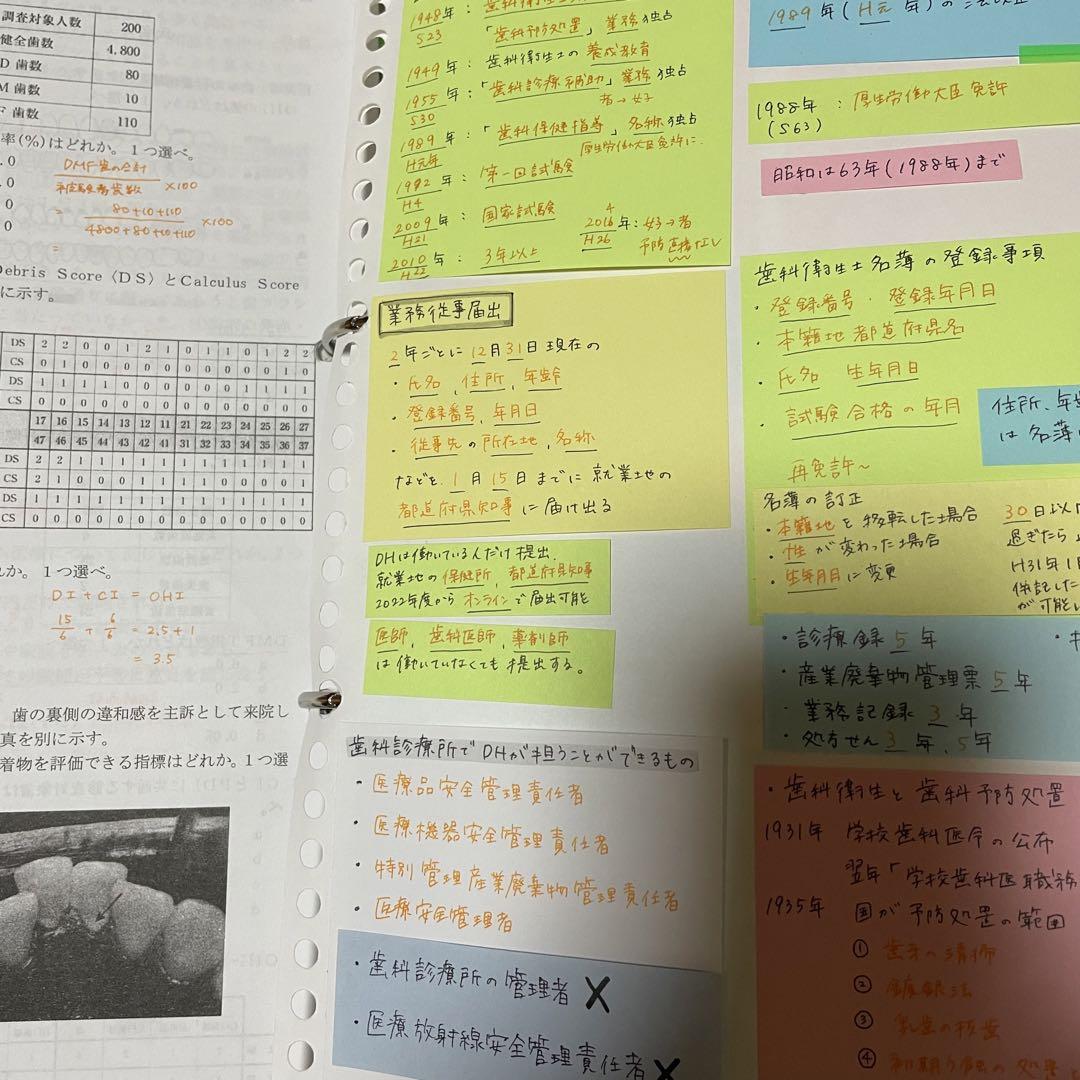 調査対象人数 200
健全歯数 4,800
D 歯数 80
M 歯数 10
F 歯数 110
率(%)はどれか。1つ選べ。
DMF歯の合計
×100
= 80+10+110
4800+80+10+110 ×100
=
Debris Score〈DS〉とCalculus Score
に示す。
DS 2 2 0 0 1 2 1 0 1 1 0 1 2 2
CS 0 1 0 0 0 0 0 0 0 0 0 0 1 0
DS 1 1 1 1 0 0 0 0 0 0 1 1 1 1
CS 0 0 0 0 0 0 0 0 0 0 0 0 0 0
17 16 15 14 13 12 11 21 22 23 24 25 26 27
47 46 45 44 43 42 41 31 32 33 34 35 36 37
DS 2 2 1 1 1 1 1 1 1 1 1 1 1 1
CS 2 1 0 0 0 1 1 1 1 1 1 1 1 1
DS 1 1 1 1 1 1 1 1 1 1 1 1 1 1
CS 0 0 0 0 0 0 0 0 0 0 0 0 0 0
れか。1つ選べ。
DI + CI = OHI
15/6 + 6/6 = 2.5 + 1
= 3.5
歯の裏側の違和感を主訴として来院し
真を別に示す。
着物を評価できる指標はどれか。1つ選
1948年:
S23 「歯科予防処置」業務独占
1949年:歯科衛生士の養成教育
1955年:「歯科診療補助」業務独占
S30 者→女子
1989年:「歯科保健指導」名称独占
H元年 厚生労働大臣免許に
1992年:第一回試験
H4
2009年:国家試験
H21
2010年:3年以上
H22
4
2016年:女子→者
H26 予防直接なし
業務従事届出
2年ごとに12月31日現在の
・氏名、住所、年齢
・登録番号、年月日
・従事先の所在地、名称
などを、1月15日までに就業地の
都道府県知事に届け出る
DHは働いている人だけ提出、
就業地の保健所、都道府県知事
2022年度からオンラインで届出可能
医師、歯科医師、薬剤師
は働いていなくても提出する。
歯科診療所でDHが担うことができるもの
・医療品安全管理責任者
・医療機器安全管理責任者
・特別管理産業廃棄物管理責任者
・医療安全管理者
・歯科診療所の管理者 X
・医療放射線安全管理責任者 X
1989年(H元年)の
1988年:厚生労働大臣免許
(S63)
昭和は63年(1988年)まで
歯科衛生士名簿の登録事項
・登録番号・登録年月日
・本籍地都道府県名
・氏名 生年月日
試験合格の年月
再免許~
住所、年
は名簿
名簿の訂正
・本籍地を移転した場合
・性が変わった場合
・生年月日に変更
30日以
過ぎたら
H31年1
併記した
が可能
・診療録5年
・産業廃棄物管理票5年
・業務記録3年
・処方せん3年、5年
・歯科衛生と歯科予防処置
1931年 学校歯科医令の公布
翌年「学校歯科医職務
1935年 国が予防処置の範囲
① 歯牙の清掃
② 鍍銀法
③ 乳歯の抜歯
④ 初期う蝕の処置